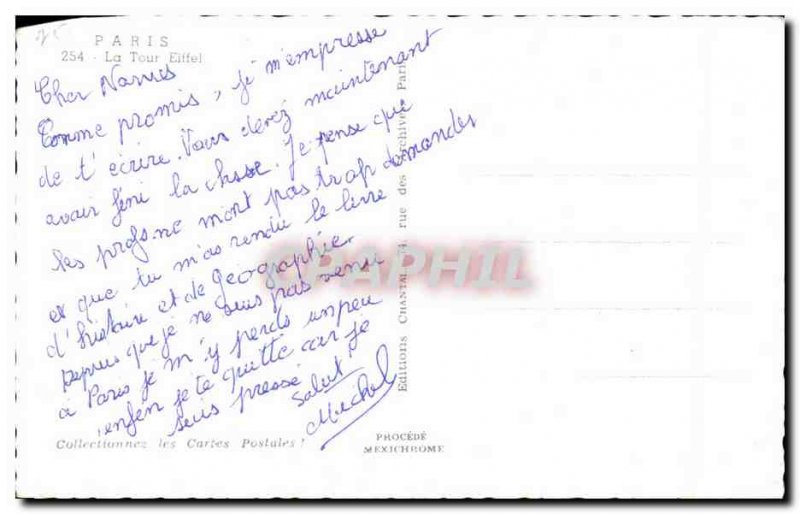 PARIS
254 - La Tour Eiffel
Cher
Comme promis, je m'empresse
de t'écrire. Vous devez maintenant
avoir fini la chasse. Je pense que
les profs ne m'ont pas trop demander
et que tu m'as rendu le livre
d'histoire et de géographie.
Depuis que je ne suis pas venu
à Paris je m'y perds un peu
enfin je te quitte car je
suis pressé
Salut
Michel
Collectionnez les Cartes Postales !
PROCÉDÉ
MEXICHROME
Editions CHANTAL, 74, rue des Archives, Paris
CPAPHIL